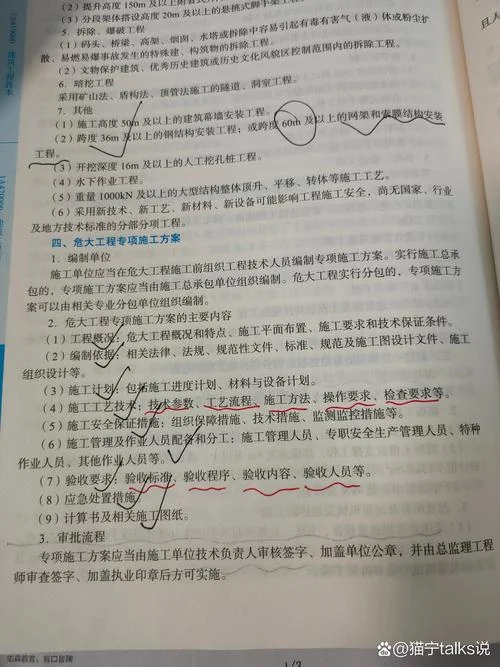 (2)提升高度150m及以上附着式
(3)分段架体搭设高度20m及以上的悬挑式脚手架工
5. 拆除、爆破工程
(1)码头、桥梁、高架、烟囱、水塔或拆除中容易引起有毒有害气(液)体或粉尘扩
散、易燃易爆事故发生的特殊建、构筑物的拆除工程。
(2)文物保护建筑、优秀历史建筑或历史文化风貌区控制范围内的拆除工程。
6. 暗挖工程
采用矿山法、盾构法、顶管法施工的隧道、洞室工程。
7. 其他
(1)施工高度50m及以上的建筑幕墙安装工程。
(2)跨度36m及以上的钢结构安装工程;或跨度60m及以上的网架和索膜结构安装
工程。
(3)开挖深度16m及以上的人工挖孔桩工程。
(4)水下作业工程。
(5)重量1000kN及以上的大型结构整体顶升、平移、转体等施工工艺。
(6)采用新技术、新工艺、新材料、新设备可能影响工程施工安全,尚无国家、行业
及地方技术标准的分部分项工程。
四、危大工程专项施工方案
1. 编制单位
施工单位应当在危大工程施工前组织工程技术人员编制专项施工方案。实行施工总承
包的,专项施工方案应当由施工总承包单位组织编制。危大工程实行分包的,专项施工方
案可以由相关专业分包单位组织编制。
2. 危大工程专项施工方案的主要内容
(1)工程概况:危大工程概况和特点、施工平面布置、施工要求和技术保证条件。
(2)编制依据:相关法律、法规、规范性文件、标准、规范及施工图设计文件、施工
组织设计等。
(3)施工计划:包括施工进度计划、材料与设备计划。
(4)施工工艺技术:技术参数、工艺流程、施工方法、操作要求、检查要求等。
(5)施工安全保证措施:组织保障措施、技术措施、监测监控措施等。
(6)施工管理及作业人员配备和分工:施工管理人员、专职安全生产管理人员、特种
作业人员、其他作业人员等。
(7)验收要求:验收标准、验收程序、验收内容、验收人员等。
(8)应急处置措施。
(9)计算书及相关施工图纸。
3. 审批流程
专项施工方案应当由施工单位技术负责人审核签字、加盖单位公章,并由总监理工程
师审查签字、加盖执业印章后方可实施。
佑森教育,有口皆碑
1/3
且人
1A420000
建筑工程技术
@猫宁talks说